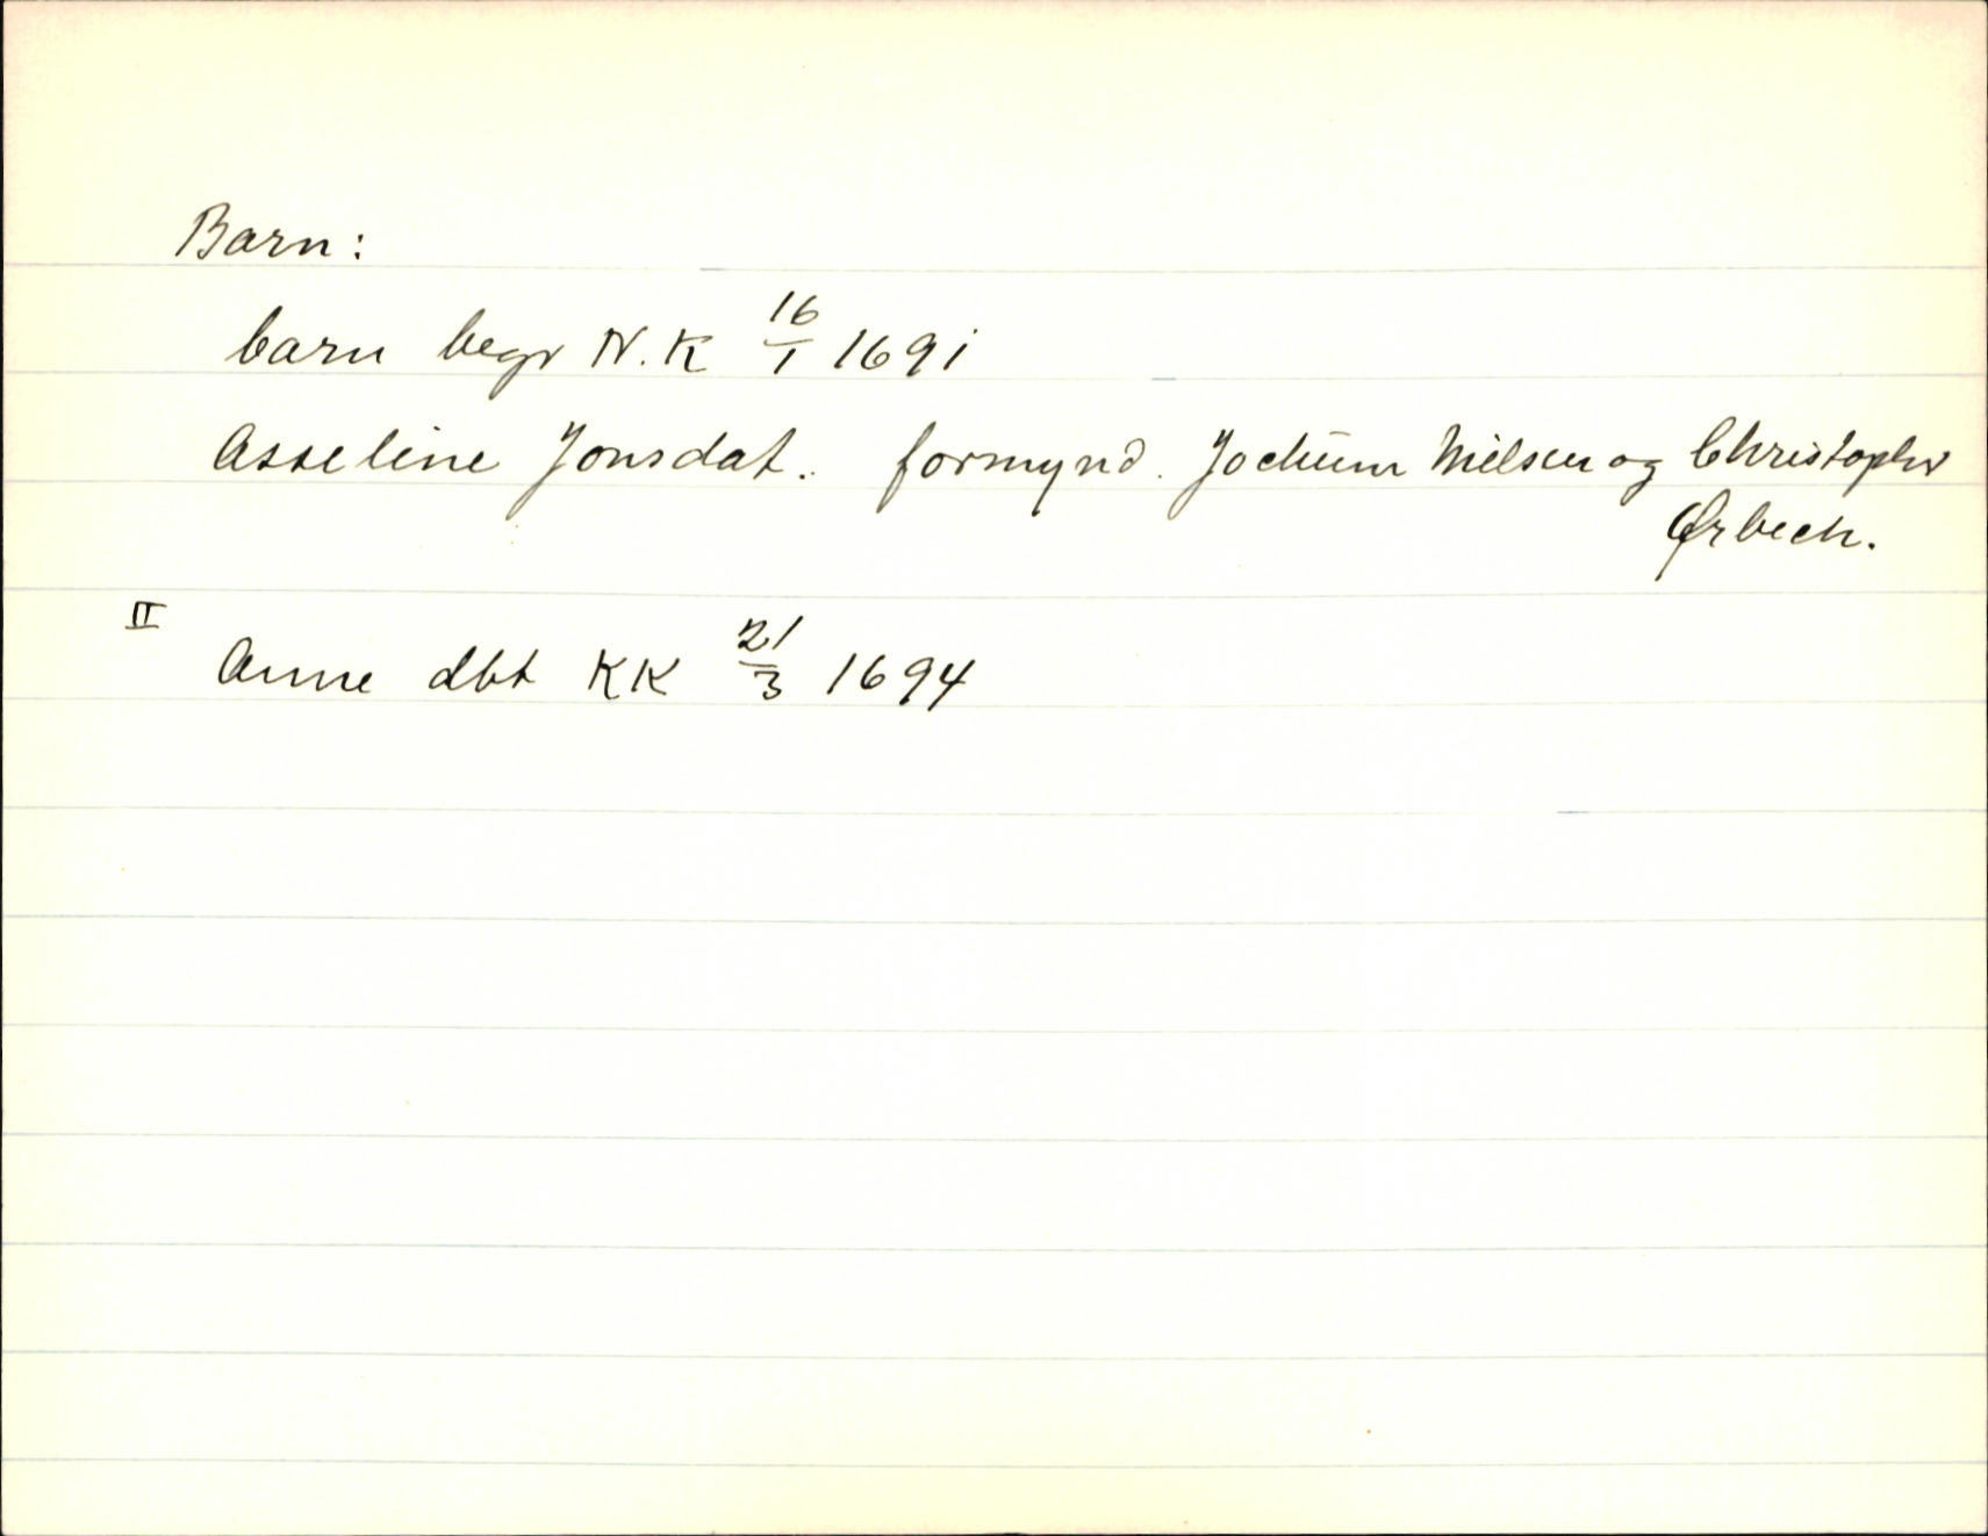 Barn:
barn begr N.K 16/1 1691
Asseline Jonsdat. formynd. Jochum Nielsen og Christopher
Ørbech.
II
Anne dbt KK 21/3 1694